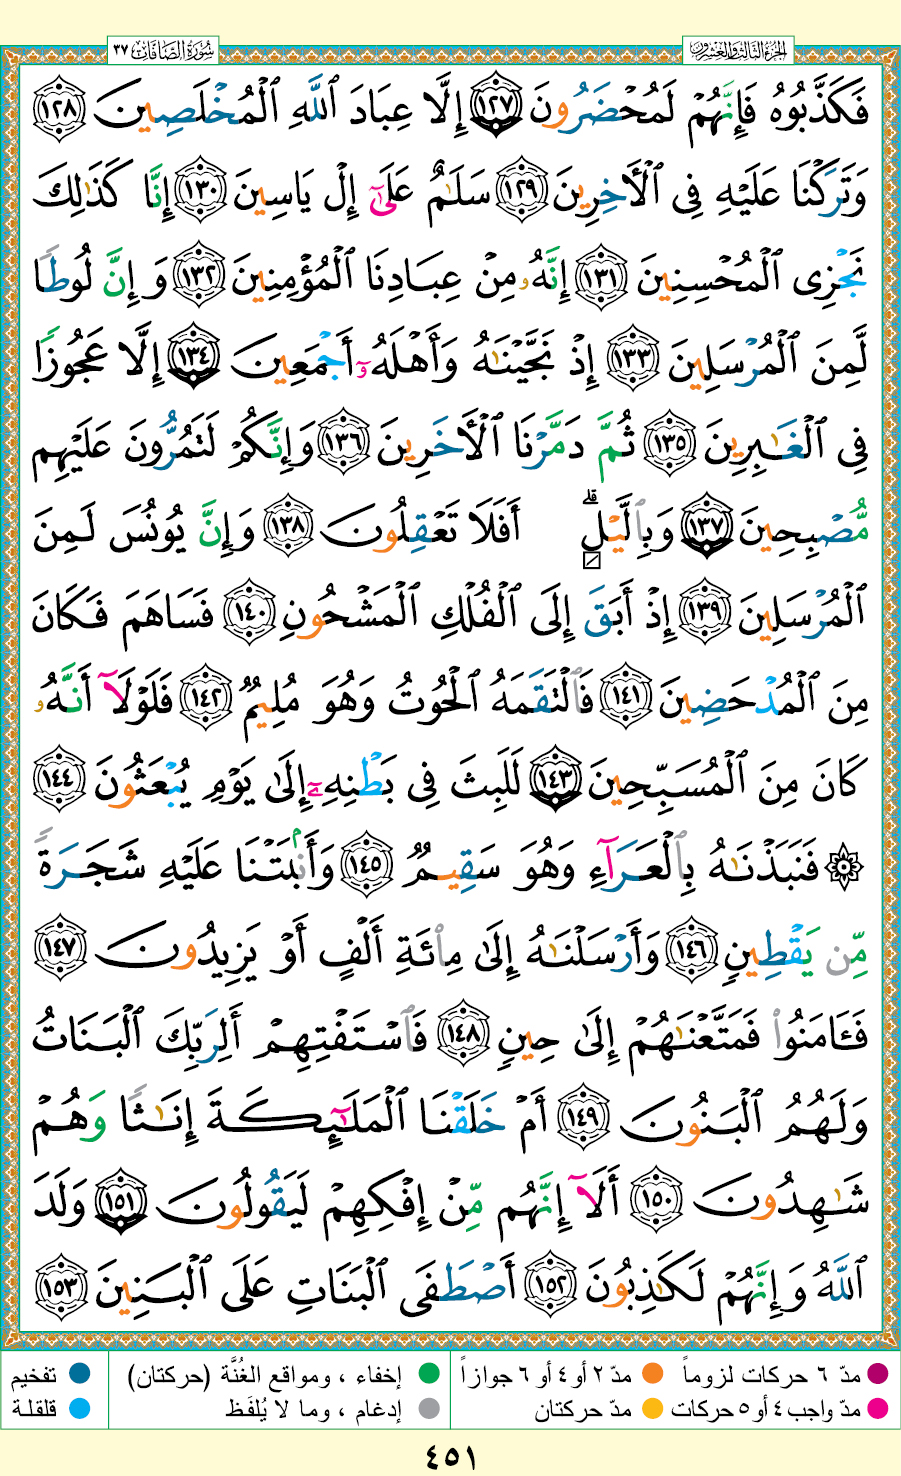 سُورَةُ الصَّافَّات ٣٧
الجزء الثالث والعشرون
فَكَذَّبُوهُ فَإِنَّهُمْ لَمُحْضَرُونَ ١٢٧ إِلَّا عِبَادَ ٱللَّهِ ٱلْمُخْلَصِينَ ١٢٨
وَتَرَكْنَا عَلَيْهِ فِى ٱلْأَخِرِينَ ١٢٩ سَلَٰمٌ عَلَىٰٓ إِلْ يَاسِينَ ١٣٠ إِنَّا كَذَٰلِكَ
نَجْزِى ٱلْمُحْسِنِينَ ١٣١ إِنَّهُۥ مِنْ عِبَادِنَا ٱلْمُؤْمِنِينَ ١٣٢ وَإِنَّ لُوطًا
لَّمِنَ ٱلْمُرْسَلِينَ ١٣٣ إِذْ نَجَّيْنَٰهُ وَأَهْلَهُۥٓ أَجْمَعِينَ ١٣٤ إِلَّا عَجُوزًا
فِى ٱلْغَٰبِرِينَ ١٣٥ ثُمَّ دَمَّرْنَا ٱلْأَخَرِينَ ١٣٦ وَإِنَّكُمْ لَتَمُرُّونَ عَلَيْهِم
مُّصْبِحِينَ ١٣٧ وَبِٱلَّيْلِۗ أَفَلَا تَعْقِلُونَ ١٣٨ وَإِنَّ يُونُسَ لَمِنَ
ٱلْمُرْسَلِينَ ١٣٩ إِذْ أَبَقَ إِلَى ٱلْفُلْكِ ٱلْمَشْحُونِ ١٤٠ فَسَاهَمَ فَكَانَ
مِنَ ٱلْمُدْحَضِينَ ١٤١ فَٱلْتَقَمَهُ ٱلْحُوتُ وَهُوَ مُلِيمٌ ١٤٢ فَلَوْلَآ أَنَّهُۥ
كَانَ مِنَ ٱلْمُسَبِّحِينَ ١٤٣ لَلَبِثَ فِى بَطْنِهِۦٓ إِلَىٰ يَوْمِ يُبْعَثُونَ ١٤٤
۞ فَنَبَذْنَٰهُ بِٱلْعَرَآءِ وَهُوَ سَقِيمٌ ١٤٥ وَأَنۢبَتْنَا عَلَيْهِ شَجَرَةً
مِّن يَقْطِينٍ ١٤٦ وَأَرْسَلْنَٰهُ إِلَىٰ مِا۟ئَةِ أَلْفٍ أَوْ يَزِيدُونَ ١٤٧
فَـَٔامَنُوا۟ فَمَتَّعْنَٰهُمْ إِلَىٰ حِينٍ ١٤٨ فَٱسْتَفْتِهِمْ أَلِرَبِّكَ ٱلْبَنَاتُ
وَلَهُمُ ٱلْبَنُونَ ١٤٩ أَمْ خَلَقْنَا ٱلْمَلَٰٓئِكَةَ إِنَٰثًا وَهُمْ
شَٰهِدُونَ ١٥٠ أَلَآ إِنَّهُم مِّنْ إِفْكِهِمْ لَيَقُولُونَ ١٥١ وَلَدَ
ٱللَّهُ وَإِنَّهُمْ لَكَٰذِبُونَ ١٥٢ أَصْطَفَى ٱلْبَنَاتِ عَلَى ٱلْبَنِينَ ١٥٣
مدّ ٦ حركات لزوماً مدّ ٢ أو ٤ أو ٦ جوازاً إخفاء ، ومواقع الغُنَّة (حركتان) تفخيم
مدّ واجب ٤ أو ٥ حركات مدّ حركتان إدغام ، وما لا يُلفَظ قلقلة
٤٥١